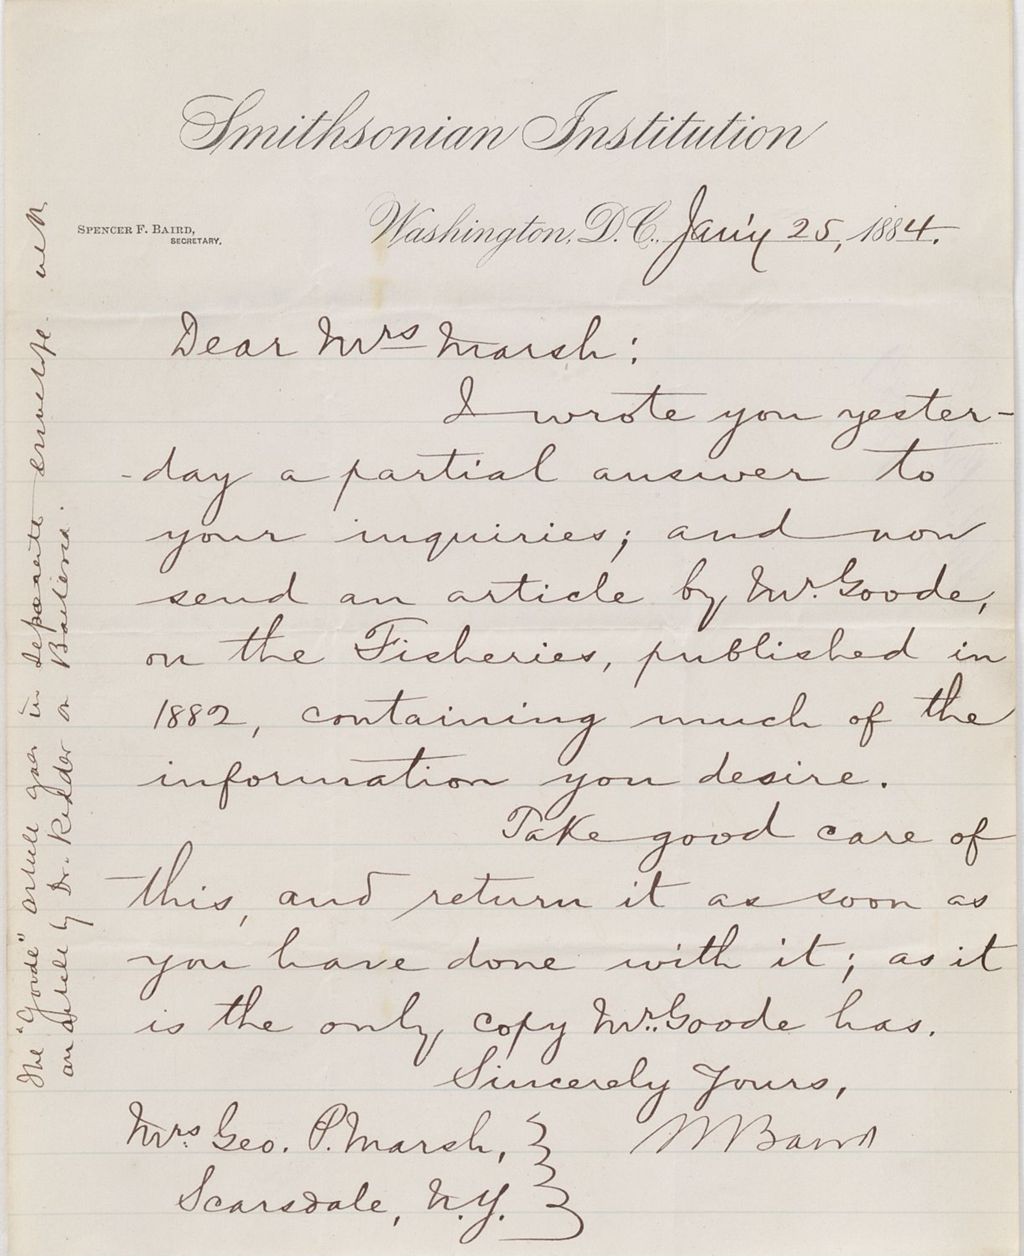 Smithsonian Institution
SPENCER F. BAIRD,
SECRETARY.
Washington, D.C., Jan'y 25, 1884.
Dear Mrs Marsh:
I wrote you yester-
-day a partial answer to
your inquiries; and now
send an article by Mr. Goode,
on the Fisheries, published in
1882, containing much of the
information you desire.
Take good care of
this, and return it as soon as
you have done with it; as it
is the only copy Mr. Goode has.
Sincerely Yours,
Baird
Mrs. Geo. P. Marsh,
Scarsdale, N.Y.
The "Goode" article goes in separate envelope. with
an article by Dr. on